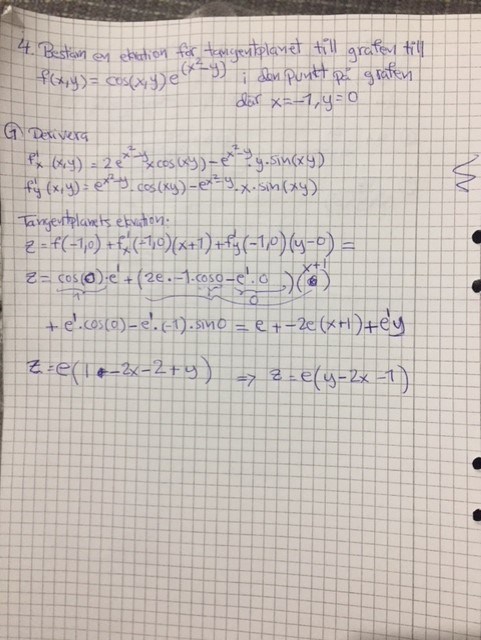 4. Bestäm en ekvation för tangentplanet till grafen till
f(x,y) = cos(x,y)e^(x²-y) i den punkt på grafen
där x=-1, y=0
① Derivera
f'x (x,y) = 2e^x²-y x cos(xy) - e^x²-y · y · sin(xy)
f'y (x,y) = e^x²-y · cos(xy) - e^x²-y · x · sin(xy)
Tangentplanets ekvation.
z = f(-1,0) + f'x(-1,0)(x+1) + f'y(-1,0)(y-0) =
z = cos(0)·e¹ + (2e·-1·cos0 - e¹·0 )(x+1)
1 0
+ e¹·cos(0) - e¹·(-1)·sin0 = e + -2e(x+1) + e¹y
z = e(1 -2x-2+y) ⇒ z = e(y-2x-1)